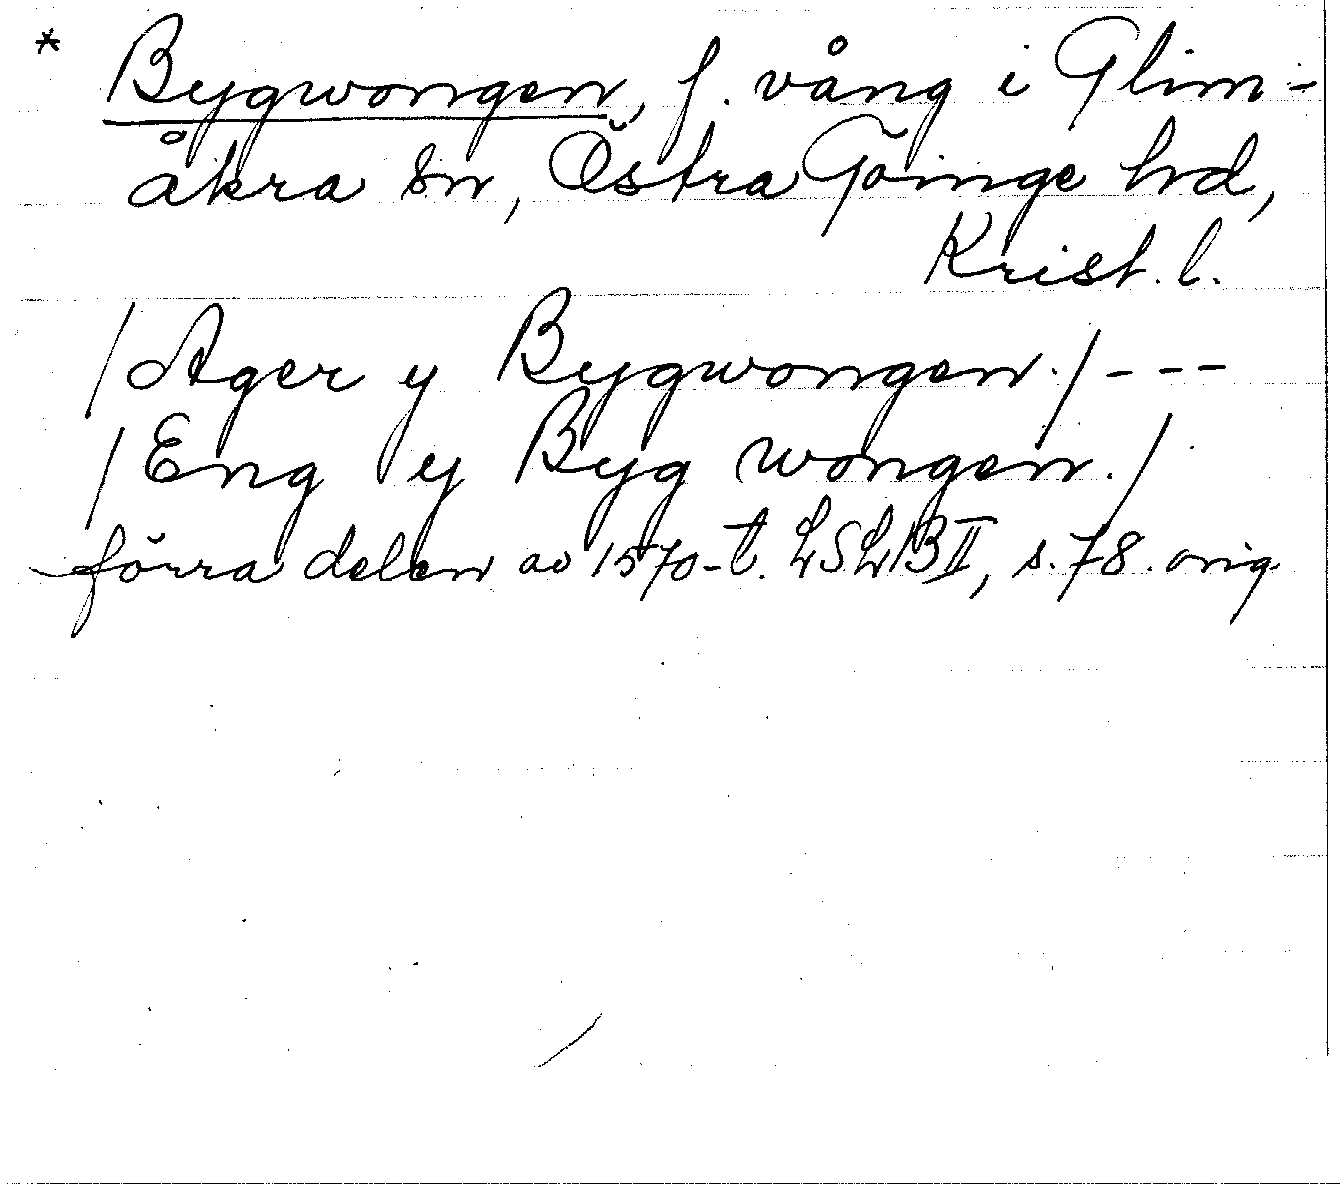 * Bygwongen, f. vång i Glim-
åkra sn, Östra Göinge hd,
Krist. l.
/Ager y Bygwongen./ ---
/Eng y Byg wongen./
förra delen av 1570-t. LSLB II, s. 78. orig